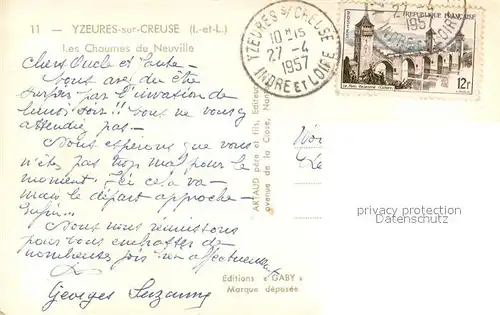 11 - YZEURES-sur-CREUSE (I.-et-L.)
Les Chaumes de Neuville
Chers Oncle et Tante -
Vous avez dû être
surpris par l'invasion de
lundi soir !! Nous ne vous y
attendiez pas -
Nous espérons que vous
n'êtes pas trop mal pour le
moment. Ici cela va -
mais le départ approche -
Enfin...
Nous nous réunissons
pour vous embrasser de
nombreuses fois bien affectueusement
Georges Suzanne
Editions « GABY »
Marque déposée
ARTAUD père et fils, Editeurs
avenue de la Close,
YZEURES S/ CREUSE
10H15
27-4
1957
INDRE ET LOIRE
27-4
195
INDRE ET LOIRE
FRANÇAISE
12F
privacy protection